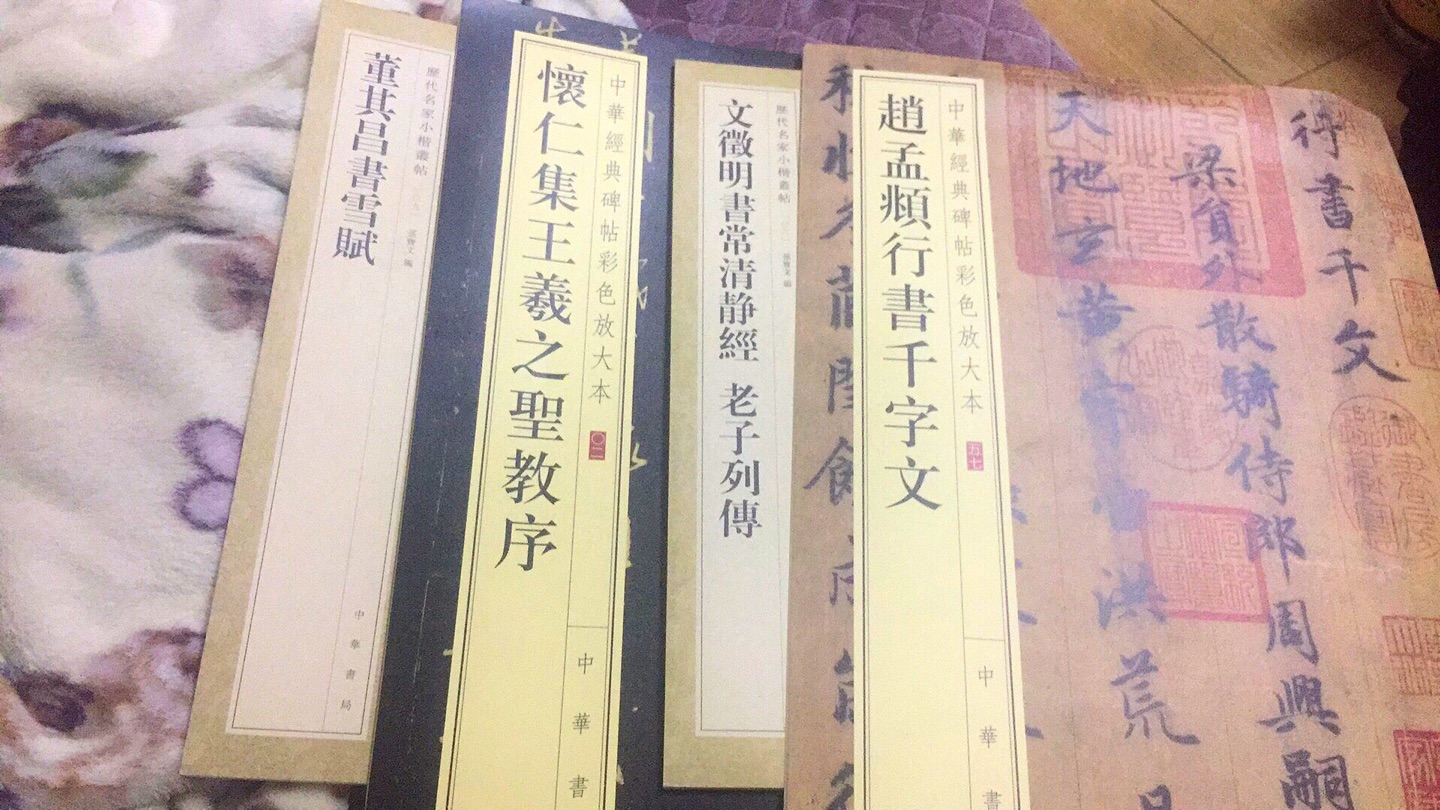 董其昌書雪賦
歷代名家小楷叢帖
中華書局
懷仁集王羲之聖教序
中華經典碑帖彩色放大本
〇二
中華書
文徵明書常清静經 老子列傳
歷代名家小楷叢帖
趙孟頫行書千字文
中華經典碑帖彩色放大本
五七
中華書
行書千文
梁員外散騎侍郎周興嗣
天地玄黃宇宙洪荒日